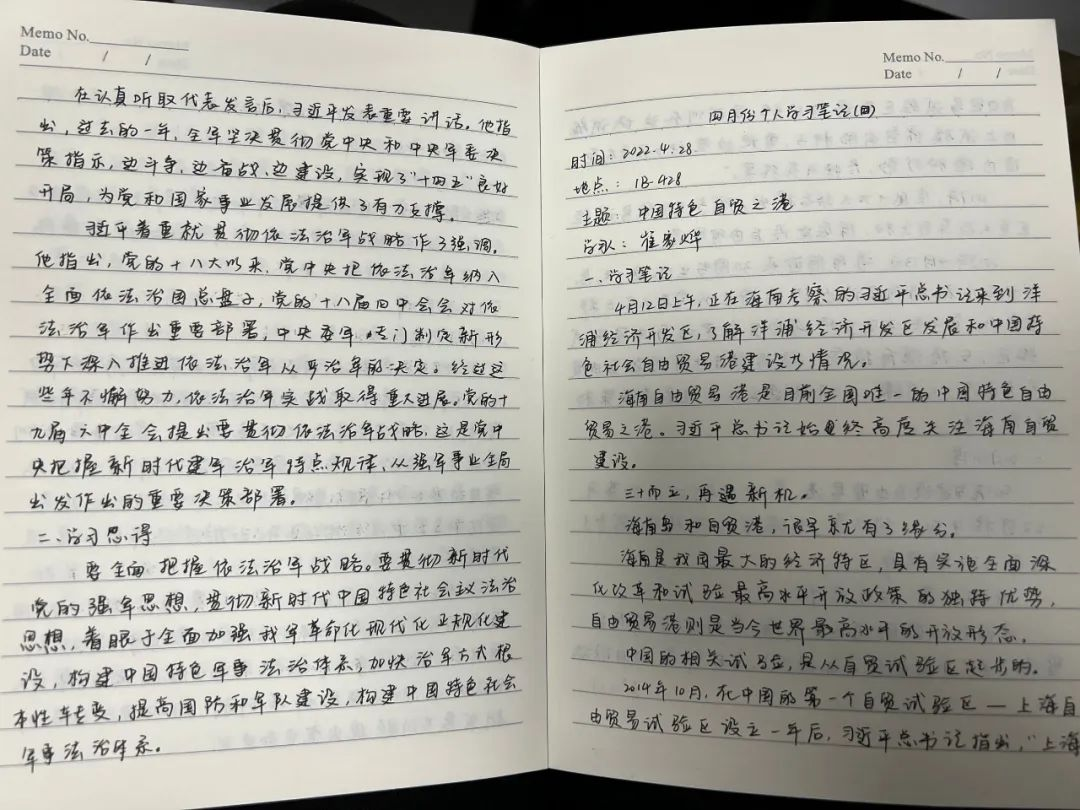 Memo No.
Date / /
在认真听取代表发言后,习近平发表重要讲话。他指
出,过去的一年,全军坚决贯彻党中央和中央军委决
策指示,边斗争、边备战、边建设,实现了"十四五"良好
开局,为党和国家事业发展提供了有力支撑。
习近平着重就贯彻依法治军战略作了强调。
他指出,党的十八大以来,党中央把依法治军纳入
全面依法治国总盘子,党的十八届四中会会对依
法治军作出重要部署,中央委军专门制定新形
势下深入推进依法治军从严治军的决定。经过这
些年不懈努力,依法治军实战取得重大进展。党的十
九届六中全会提出要贯彻依法治军战略,这是党中
央把握新时代建军治军特点规律,从强军事业全局
出发作出的重要决策部署。
二、学习思得
要全面把握依法治军战略。要贯彻新时代
党的强军思想,贯彻新时代中国特色社会主义法治
思想,着眼于全面加强我军革命化现代化正规化建
设,构建中国特色军事法治体系,加快治军方式根
本性转变,提高国防和军队建设,构建中国特色社会
军事法治体系。
Memo No.
Date / /
四月份个人学习笔记(四)
时间:2022.4.28
地点:1B-428
主题:中国特色自贸之港
学员:崔家烨
一、学习笔记
4月12日上午,正在海南考察的习近平总书记来到洋
浦经济开发区,了解洋浦经济开发区发展和中国特
色社会自由贸易港建设为情况。
海南自由贸易港是目前全国唯一的中国特色自由
贸易之港。习近平总书记始终高度关注海南自贸
建设。
三十而立,再遇新机。
海南岛和自贸港,很早就有了缘分。
海南是我国最大的经济特区,具有实施全面深
化改革和试验最高水平开放政策的独特优势,
自由贸易港则是当今世界最高水平的开放形态。
中国的相关试验,是从自贸试验区起步的。
2014年10月,在中国的第一个自贸试验区—上海自
由贸易试验区设立一年后,习近平总书记指出,"上海